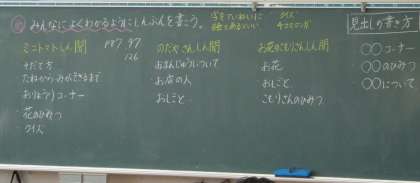 みんなによくわかるようにしんぶんを書こう。
字をていねいに
絵もあるといい
クイズ
4コママンガ
見出しの書き方
ミニトマトしん聞
そだて方
たねからみができるまで
おりょうりコーナー
花のひみつ
クイズ
のだやさんしん聞
おまんじゅうについて
お店の人
おしごと
お花のこもりさんしん聞
お花
おしごと
こもりさんのひみつ
○○コーナー
○○のひみつ
○○について